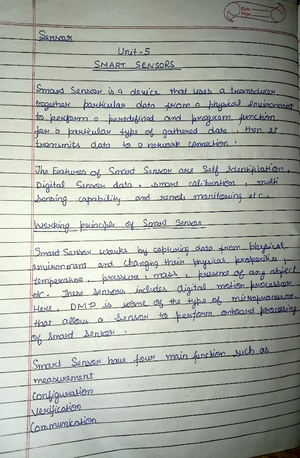 Date
Page
Sensor
Unit-5
SMART SENSORS
Smart Sensor is a device that uses a transducer
together particular data from a physical environment
to perform a predefined and program function
for a particular type of gathered data. then it
transmits data to a network connection.
The features of Smart Sensor are Self Identification,
Digital Sensor data, smart calibration, multi
sensing capability and remote monitoring etc.
Working principle of Smart Sensor
Smart Sensor works by capturing data from physical
environment and changing their physical properties,
temperature, pressure, mass, presence of any object
etc. These sensors includes digital motion processor
Here, DMP is some of the type of microprocessor
that allow a sensor to perform onboard processing
of smart sensor.
Smart Sensor have four main function such as
measurement
Configuration
Verification
Communication